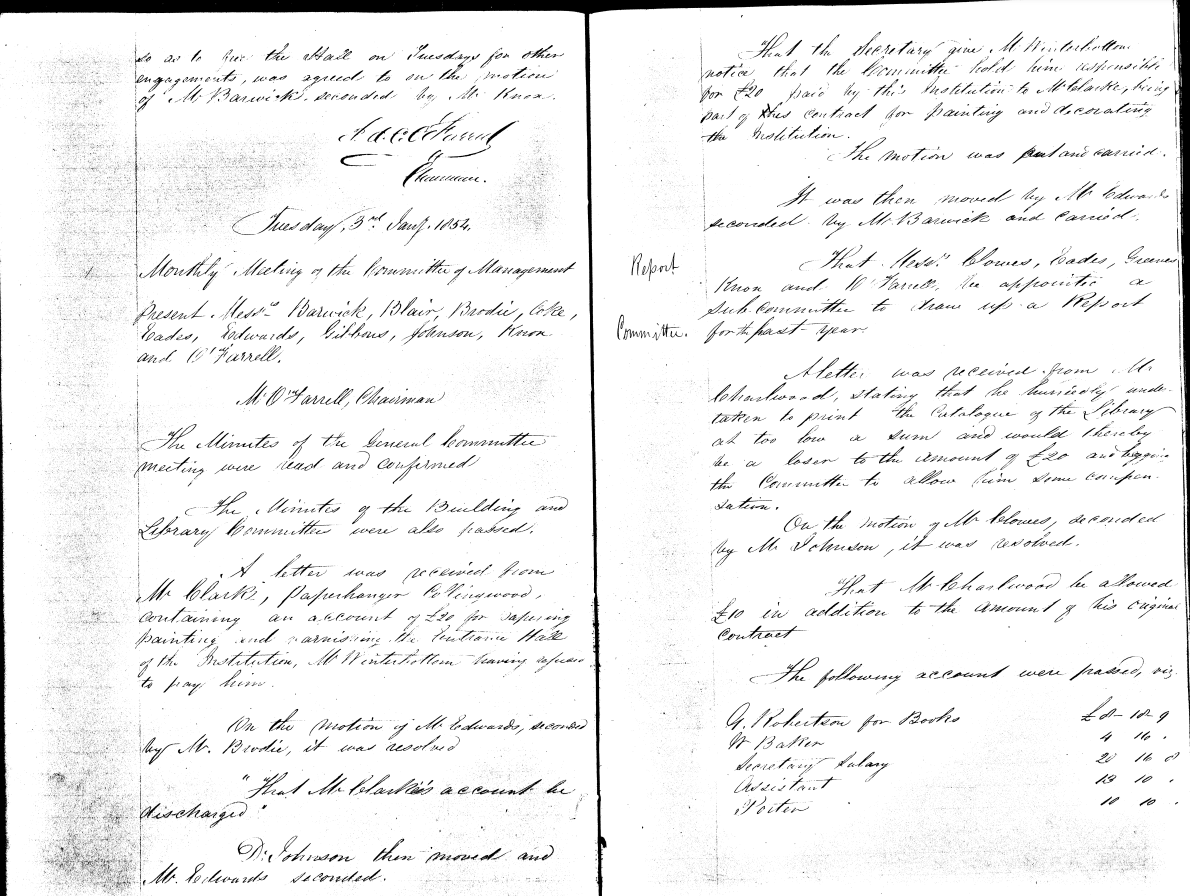 so as to give the Hall on Tuesdays for other
engagements, was agreed to on the motion
of Mr Barwick seconded by Mr Knox.
Chairman.
Tuesday, 3rd Jany. 1854.
Monthly Meeting of the Committee of Management
Present Messrs Barwick, Blair, Brodie, Coke,
Eades, Edwards, Gibbons, Johnson, Knox
and O'Farrell.
Mr O'Farrell, Chairman
The Minutes of the General Committee
meeting were read and confirmed
The Minutes of the Building and
Library Committee were also passed.
A letter was received from
Mr Clark, Paperhanger Collingwood,
containing an account of £20 for papering
painting and varnishing the Entrance Hall
of the Institution, Mr Winterbottom having refused
to pay him.
On the motion of Mr Edwards, seconded
by Mr. Brodie, it was resolved
"That Mr Clarke's account be
discharged"
Dr Johnson then moved and
Mr. Edwards seconded.
"That the Secretary give Mr Winterbottom
notice, that the Committee hold him responsible
for £20 paid by this Institution to Mr Clarke, being
part of his contract for painting and decorating
the Institution.
The motion was put and carried.
It was then moved by Mr Edwards
seconded by Mr Barwick and carried.
Report
Committee.
That Messrs Clowes, Eades, Greeves
Knox and O'Farrell, be appointed a
sub-committee to draw up a Report
for the past year
A letter was received from Mr
Charlwood, stating that he hurriedly under-
taken to print the Catalogue of the Library
at too low a sum and would thereby
be a loser to the amount of £20 and begging
the Committee to allow him some compen-
sation.
On the motion of Mr Clowes, seconded
by Mr Johnson, it was resolved.
"That Mr Charlwood be allowed
£10 in addition to the amount of his original
contract
The following account were passed, viz
G. Robertson for Books £8-18-9
W Baker 4 16 .
Secretary Salary 20 16 8
Assistant 10 .
Porter 10 10 .